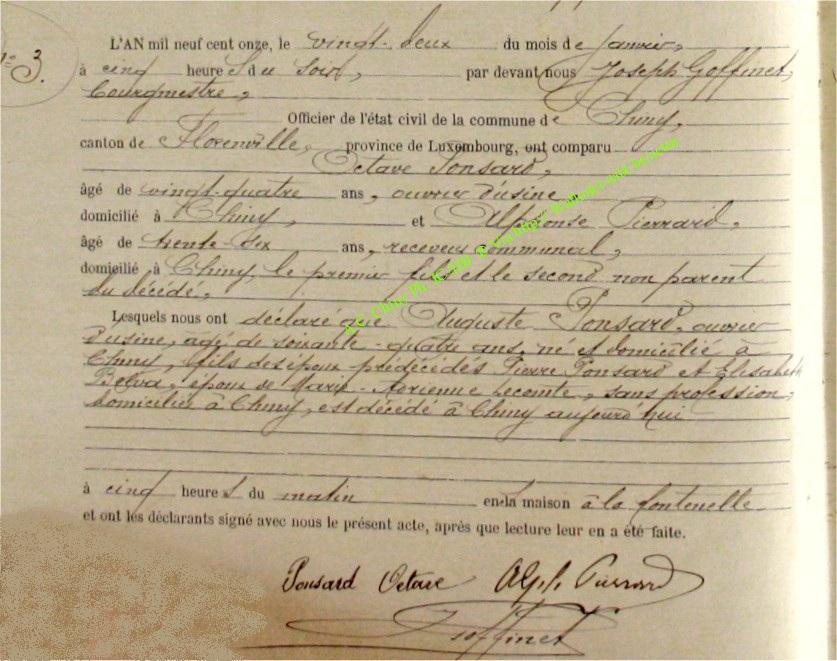 N° 3.
L'AN mil neuf cent onze, le vingt-deux du mois de janvier,
à cinq heures du soir, par devant nous Joseph Goffinet,
bourgmestre,
Officier de l'état civil de la commune de Chiny,
canton de Florenville, province de Luxembourg, ont comparu
Octave Ponsard,
âgé de vingt-quatre ans, ouvrier d'usine,
domicilié à Chiny, et Alphonse Pierrard,
âgé de trente six ans, receveur communal,
domicilié à Chiny, le premier fils et le second non parent
du décédé,
Lesquels nous ont déclaré que Auguste Ponsard, ouvrier
d'usine, âgé de soixante-quatre ans, né et domicilié à
Chiny, fils des époux prédécédés Pierre Ponsard et Elisabeth
Belva, époux de Marie-Adrienne Lecomte, sans profession,
domiciliée à Chiny, est décédé à Chiny aujourd'hui
à cinq heures du matin en sa maison à la fontenelle
et ont les déclarants signé avec nous le présent acte, après que lecture leur en a été faite.
Ponsard Octave Alph. Pierrard
Goffinet